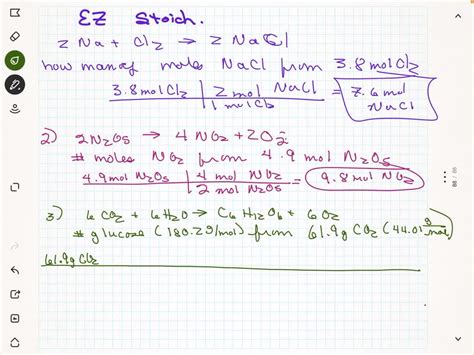 EZ Stoich.
2 Na + Cl2 → 2 NaCl
how many moles NaCl from 3.8 mol Cl2
3.8 mol Cl2 | 2 mol NaCl = 7.6 mol
1 mol Cl2 NaCl
2) 2N2O5 → 4 NO2 + 2O2
# moles NO2 from 4.9 mol N2O5
4.9 mol N2O5 | 4 mol NO2 = 9.8 mol NO2
2 mol N2O5
3) 6 CO2 + 6 H2O → C6H12O6 + 6O2
# glucose (180.2g/mol) from 61.9g CO2 (44.01 g/mol)
61.9g CO2